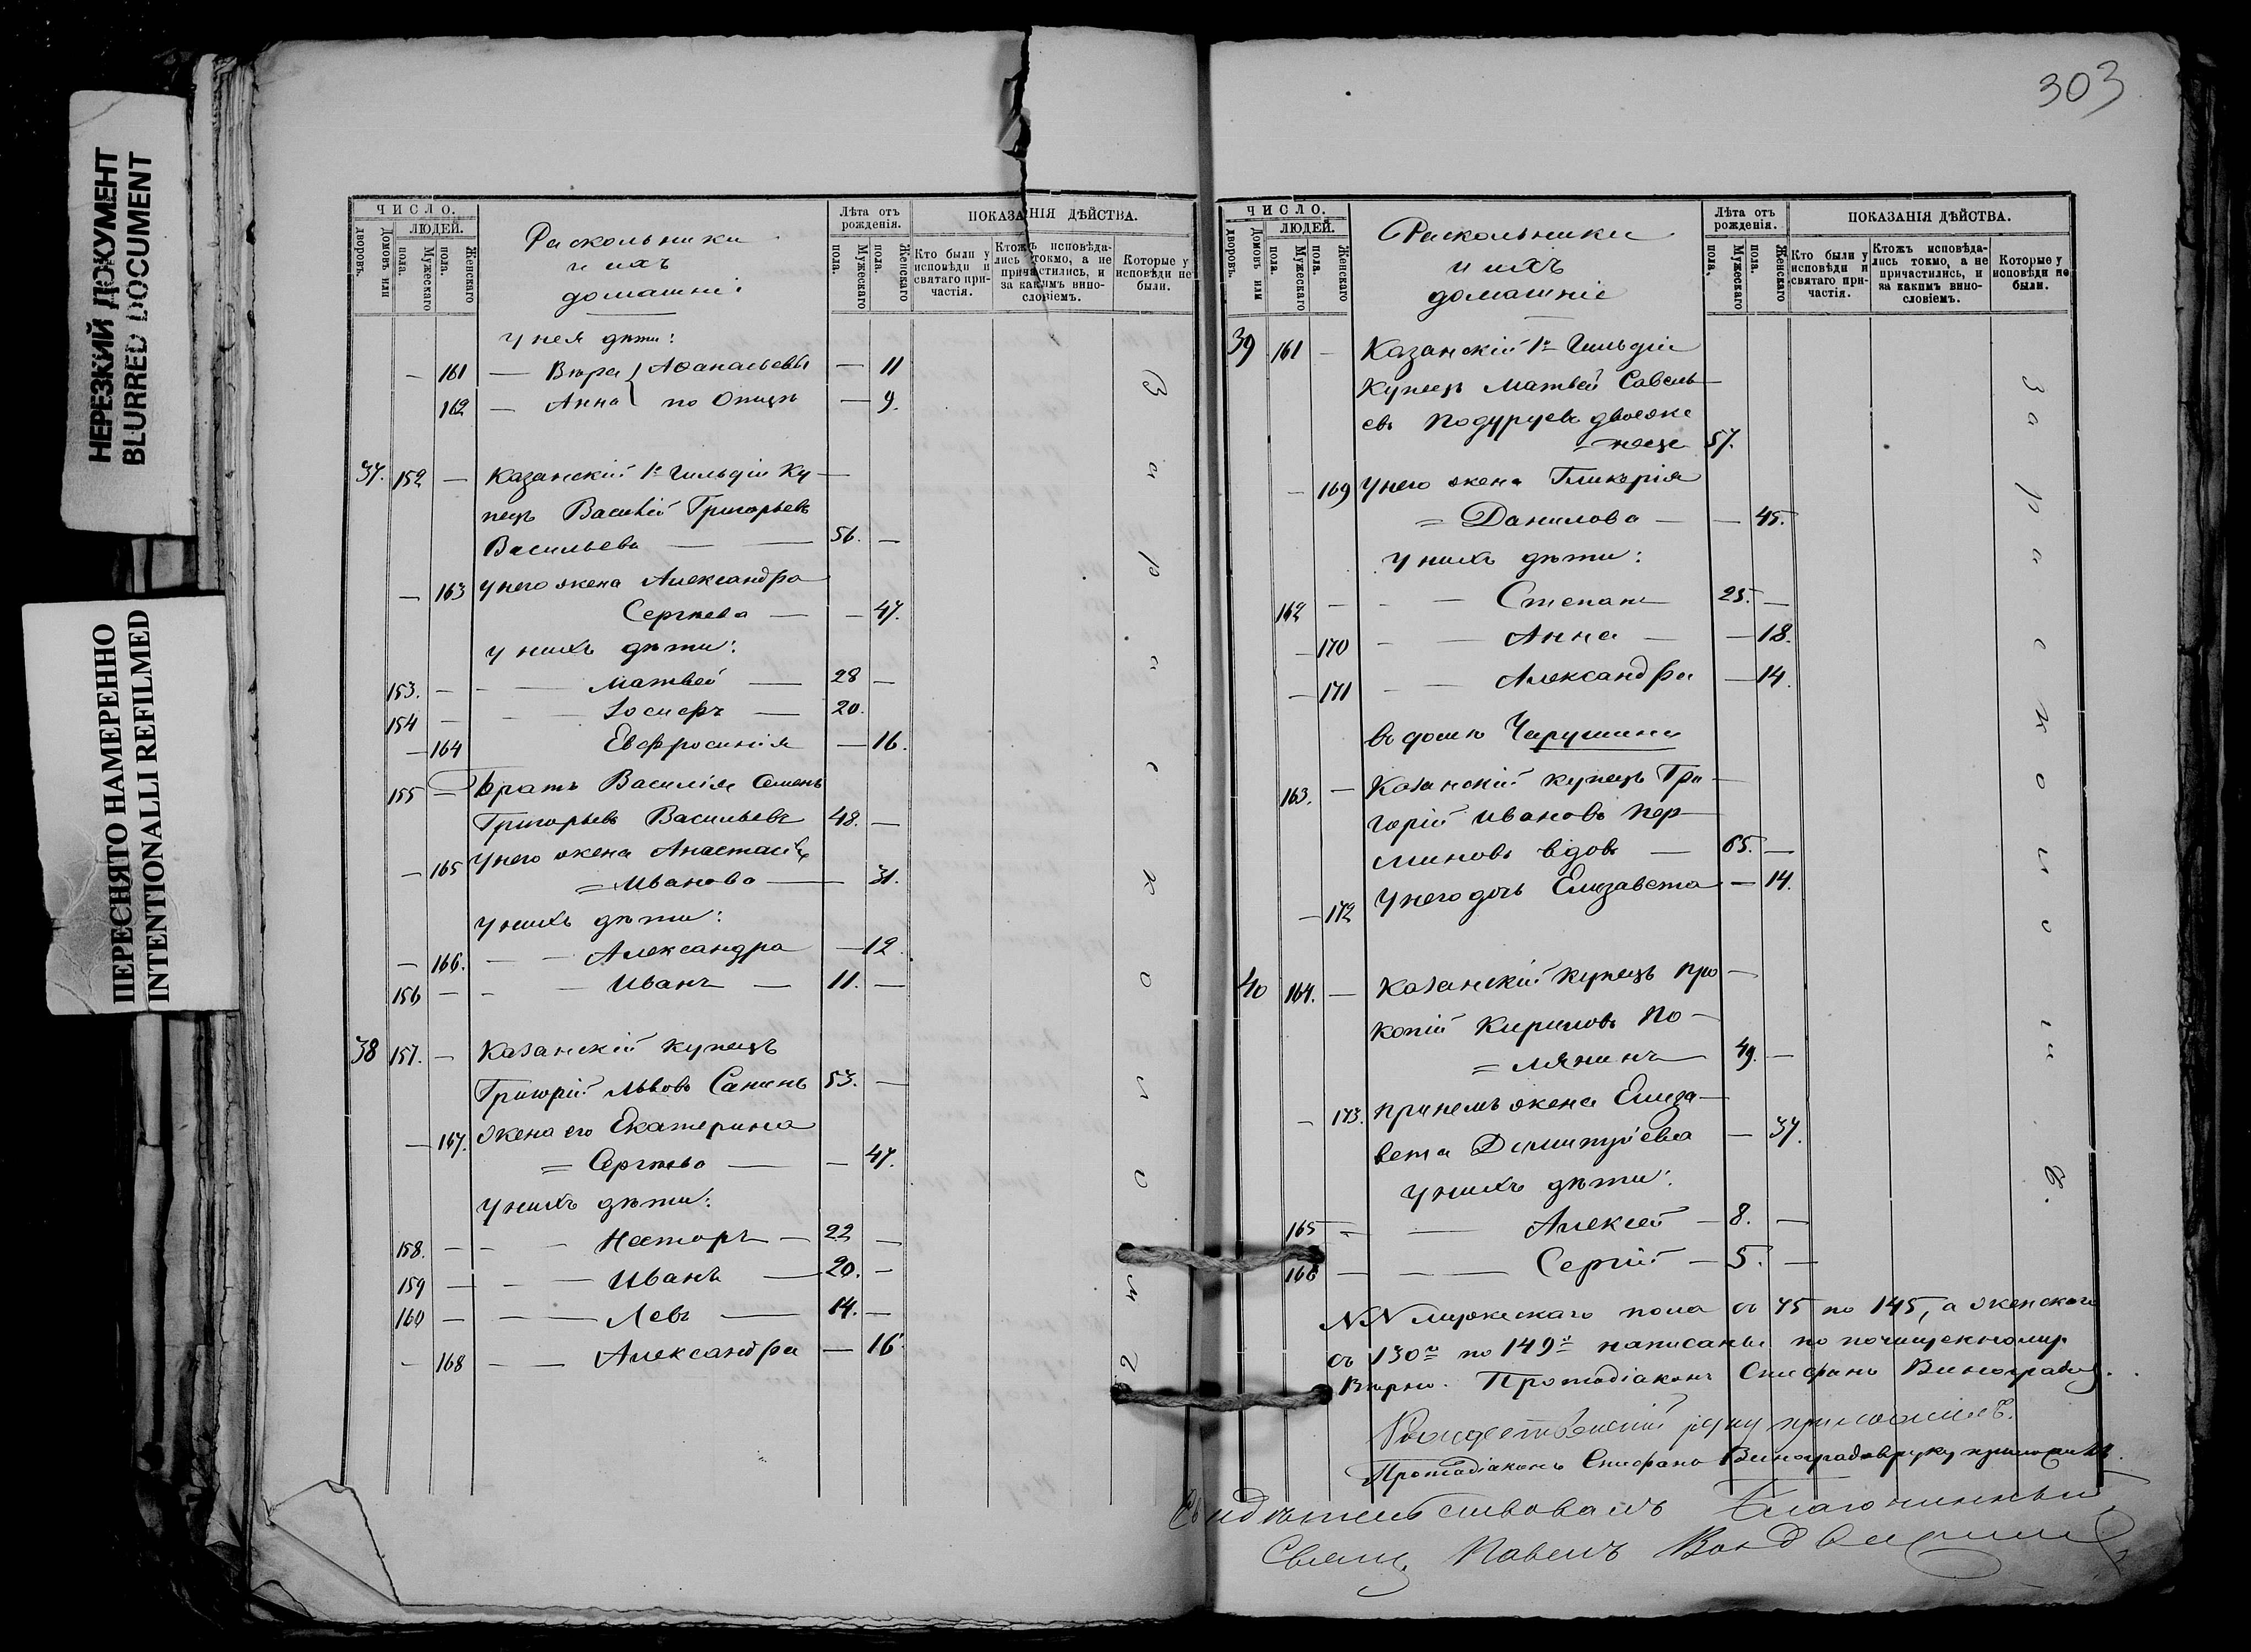 НЕРЕЗКИЙ ДОКУМЕНТ
BLURRED DOCUMENT
ПЕРЕСНЯТО НАМЕРЕННО
INTENTIONALLI REFILMED
ЧИСЛО.
ЛЮДЕЙ.
Домовъ или дворовъ.
Мужескаго пола.
Женскаго пола.
Раскольники
и ихъ
домашніе
Лѣта отъ рожденія.
Мужескаго пола.
Женскаго пола.
ПОКАЗАНІЯ ДѢЙСТВА.
Кто были у исповѣди и святаго причастія.
Ктожъ исповѣдались токмо, а не причастились, и за какимъ винословіемъ.
Которые у исповѣди не были.
У нея дѣти:
— 161 — Вѣра } Аѳанасьевы — 11
162 — Анна } по Отцѣ — 9.
37. 152 — Казанскій 1й Гильдіи Ку—
пецъ Василій Григорьевъ
Васильевъ — — 56. —
— 163 У него жена Александра
Сергѣева — — 47.
У нихъ дѣти:
153. — — — Матвей — 28 —
154 — — — Іосифъ — 20.
— 164 Евфросинія — 16.
155 — Братъ Василія Семенъ
Григорьевъ Васильевъ 48. —
— 165 У него жена Анастасія
= Иванова — 31.
У нихъ дѣти:
— 166. — — Александра — 12.
156 — — — Иванъ — 11. —
38 157. — Казанскій купецъ
Григорій Львовъ Санинъ 53. —
— 167. Жена его Екатерина
= Сергѣева — — 47.
У нихъ дѣти:
158. — — — Несторъ — 22 —
159 — — — Иванъ — 20. —
160 — — — Левъ — 14. —
— 168 — — Александра — 16.
За расколомъ
303
ЧИСЛО.
ЛЮДЕЙ.
Домовъ или дворовъ.
Мужескаго пола.
Женскаго пола.
Раскольники
и ихъ
домашніе
Лѣта отъ рожденія.
Мужескаго пола.
Женскаго пола.
ПОКАЗАНІЯ ДѢЙСТВА.
Кто были у исповѣди и святаго причастія.
Ктожъ исповѣдались токмо, а не причастились, и за какимъ винословіемъ.
Которые у исповѣди не были.
39 161 — Казанскій 1й Гильдіи
Купецъ Матвей Савель—
евъ Подуруевъ двоеже
—нецъ 57.
— 169 У него жена Гликерія
= Данилова — — 45.
У нихъ дѣти:
162 — — — Степанъ 25. —
— 170 — — Анна — — 18.
— 171 — — Александра — 14.
въ домѣ Чарушина
163. — Казанскій купецъ Гри—
горій Ивановъ Пер—
миновъ вдовъ — 65. —
— 172 У него дочь Елизавета — 14.
40 164. — Казанскій Купецъ Про—
копій Кириловъ По—
= лянинъ 49. —
— 173. При немъ жена Елиза—
вета Димитріева — 37.
У нихъ дѣти:
165 — — Алексей — 8. —
166 — — — Сергій — 5. —
За расколомъ.
NN мужескаго пола съ 75 по 145, а женскаго
съ 130й по 149й написаны по почищенному
Вѣрно. Протодіаконъ Стефанъ Виноградовъ.
Рождественскій руку приложилъ.
Протодіаконъ Стефанъ Виноградовъ руку приложилъ.
Свидѣтельствовалъ Благочинный
Свящ. Павелъ